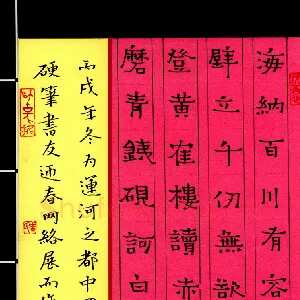 海納百川有容
壁立千仞無欲
登黄崔樓讀赤
磨青銕硯訶白
丙戌年冬为運河之都中
硬筆書友迎春网絡展而作